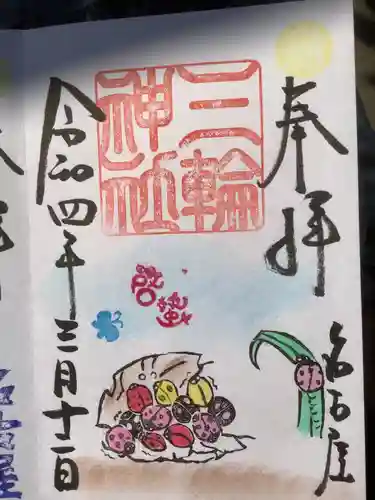 奉拝
名古屋
三輪
神社
啓蟄
令和四年三月十二日
名古屋